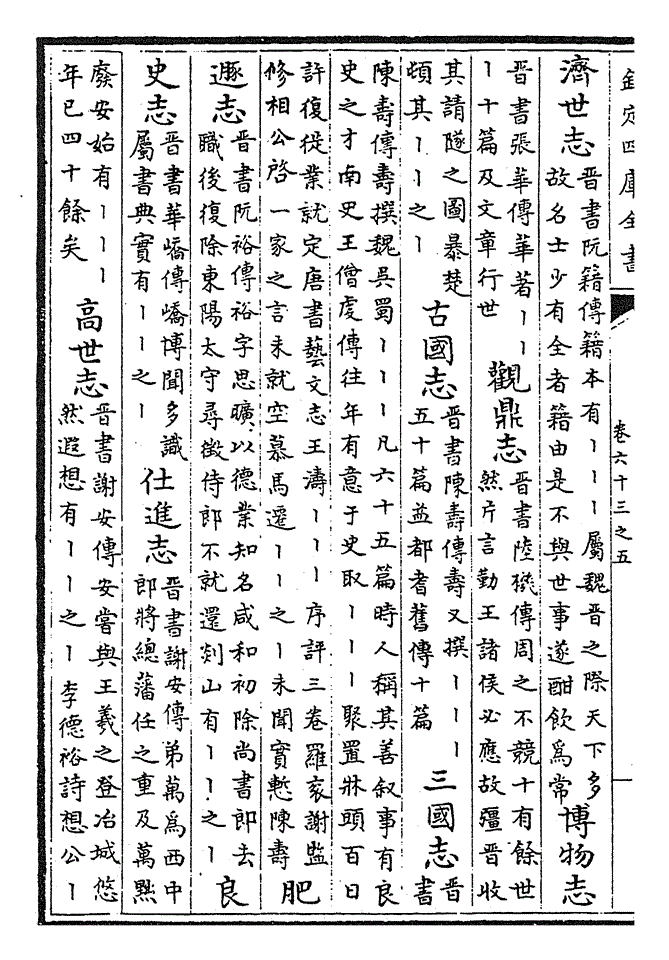 欽定四庫全書
卷六十三之五
一
濟世志晉書阮籍傳籍本有丨丨丨屬魏晉之際天下多
故名士少有全者籍由是不與世事遂酣飲為常博物志
晉書張華傳華著丨丨
丨十篇及文章行世觀鼎志晉書陸機傳周之不競十有餘世
然片言勤王諸侯必應故彊晉收
其請隧之圖暴楚
頓其丨丨之丨古國志晉書陳壽傳壽又撰丨丨丨
五十篇益都耆舊傳十篇三國志晉
書
陳壽傳壽撰魏吳蜀丨丨丨凡六十五篇時人稱其善叙事有良
史之才南史王僧虔傳往年有意于史取丨丨丨聚置牀頭百日
許復從業就定唐書藝文志王濤丨丨丨序評三卷羅衮謝監
修相公啓一家之言未就空慕馬遷丨丨之丨未聞實慙陳壽肥
遯志晉書阮裕傳裕字思曠以德業知名咸和初除尚書郎去
職後復除東陽太守尋徵侍郎不就還剡山有丨丨之丨良
史志晉書華嶠傳嶠博聞多識
屬書典實有丨丨之丨仕進志晉書謝安傳弟萬為西中
郎將總藩任之重及萬黜
廢安始有丨丨丨
年已四十餘矣高世志晉書謝安傳安嘗與王羲之登冶城悠
然遐想有丨丨之丨李德裕詩想公丨